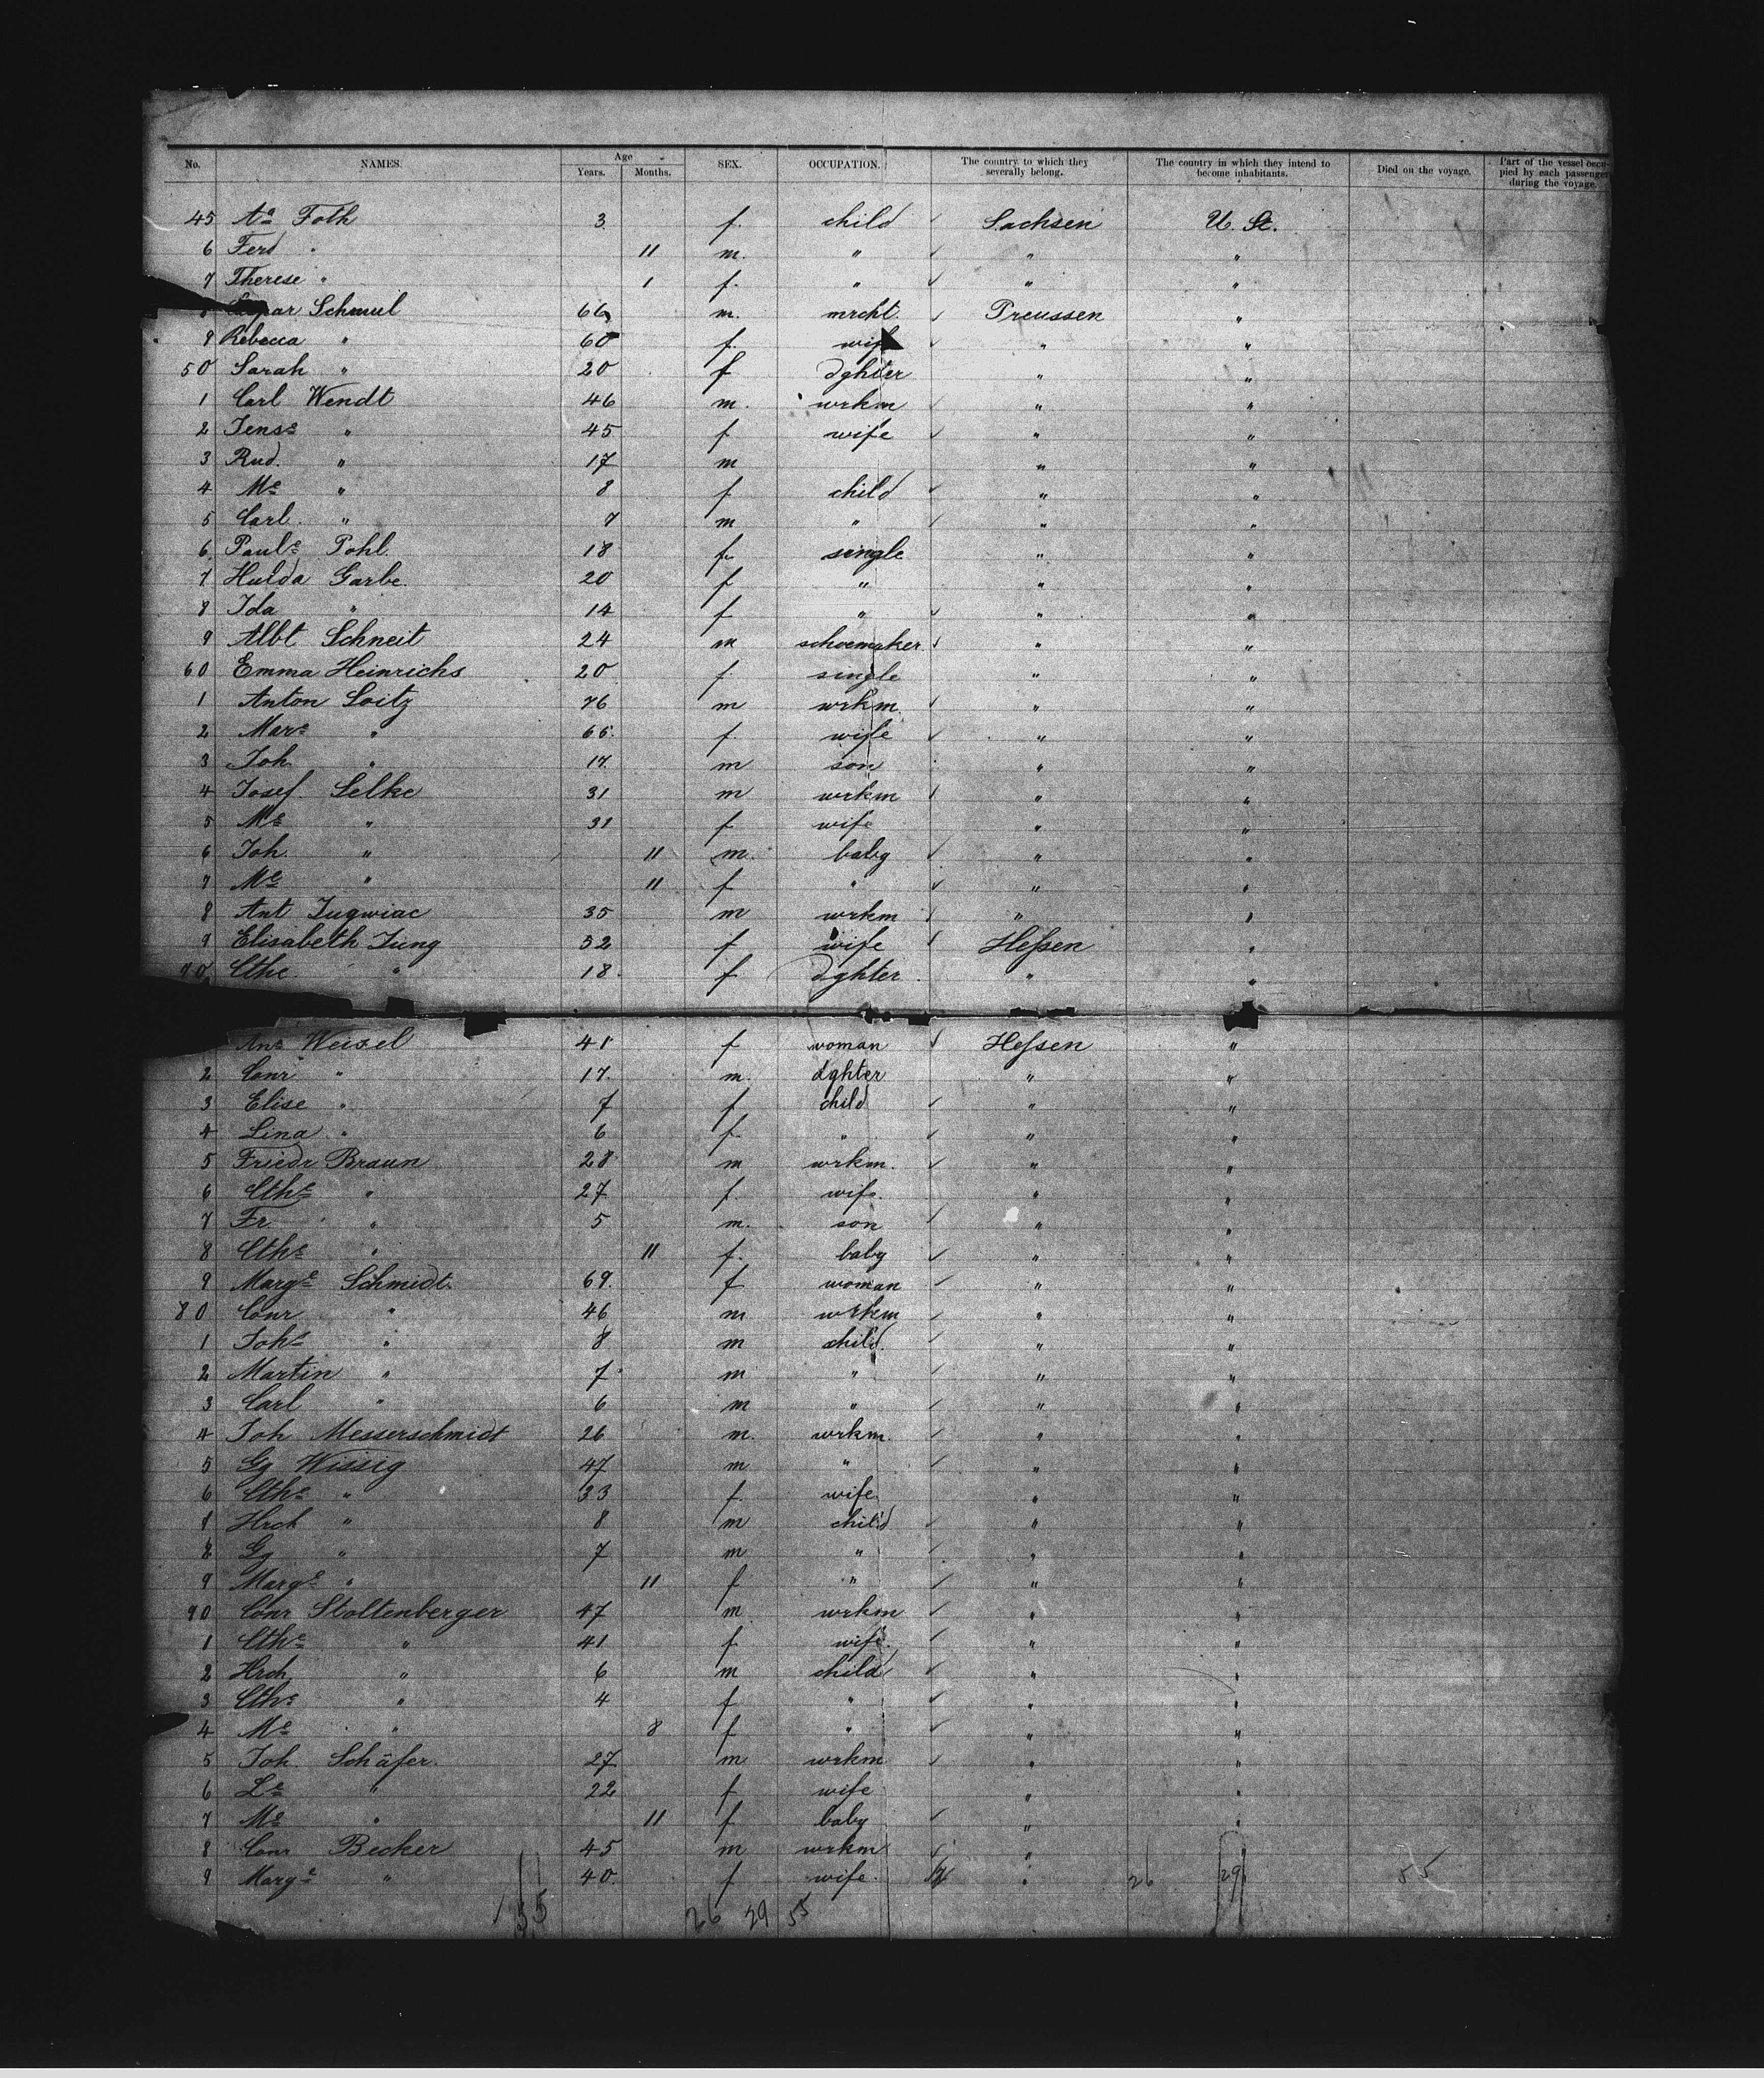 No. NAMES. Age Years. Months. SEX. OCCUPATION. The country to which they severally belong. The country in which they intend to become inhabitants. Died on the voyage. Part of the vessel occupied by each passenger during the voyage.
45 Aa Foth 3 f. child Sachsen U. St.
6 Ferd " 11 m. " " "
7 Therese " 1 f. " " "
Schmul 66 m. mrcht. Preussen "
9 Rebecca " 60 f. wife " "
50 Sarah " 20 f dghter " "
1 Carl Wendt 46 m. wrkm " "
2 Jense " 45 f wife " "
3 Rud. " 17 m " "
4 Me " 8 f child " "
5 Carl. " 7 m " " "
6 Paule Pohl 18 f single " "
7 Hulda Garbe 20 f " " "
8 Ida " 14 f " " "
9 Albt Schneit 24 m schoemaker " "
60 Emma Heinrichs 20 f single " "
1 Anton Loitz 76 m wrkm " "
2 Mare " 66 f. wife " "
3 Joh " 17 m son " "
4 Josef. Selke 31 m wrkm " "
5 Me " 31 f wife " "
6 Joh. " 11 m. baby " "
7 Me " 11 f " " "
8 Ant Jugwiac 35 m wrkm " "
9 Elisabeth Jung 52 f wife Hessen "
70 Cthe. " 18. f dghter " "
Ane Weisel 41 f woman Hessen "
2 Conr " 17. m. dghter " "
3 Elise " 7 f child " "
4 Lina " 6 f. " " "
5 Friedr Braun 28 m wrkm. " "
6 Cthe " 27 f wife. " "
7 Fr. " 5 m. son " "
8 Cthe " 11 f. baby " "
9 Marge Schmidt 69. f woman " "
80 Conr " 46 m wrkm " "
1 Johs " 8 m child. " "
2 Martin " 7 m " " "
3 Carl " 6 m " " "
4 Joh Messerschmidt 26 m. wrkm. " "
5 Gg Wissig 47 m " " "
6 Cthe " 33 f. wife " "
7 Hrch " 8 m child " "
8 Gg " 7 m " " "
9 Marge " 11 f " " "
90 Conr Stoltenberger 47 m wrkm " "
1 Cthe " 41 f wife. " "
2 Hrch " 6 m child " "
3 Cthe " 4 f " " "
4 Me " 8 f " " "
5 Joh. Schäfer. 27 m wrkm " "
6 Le " 22 f wife " "
7 Me " 11 f baby " "
8 Conr Becker 45 m wrkm " "
9 Marge " 40. f wife. " 26 29 55
155 26 29 55